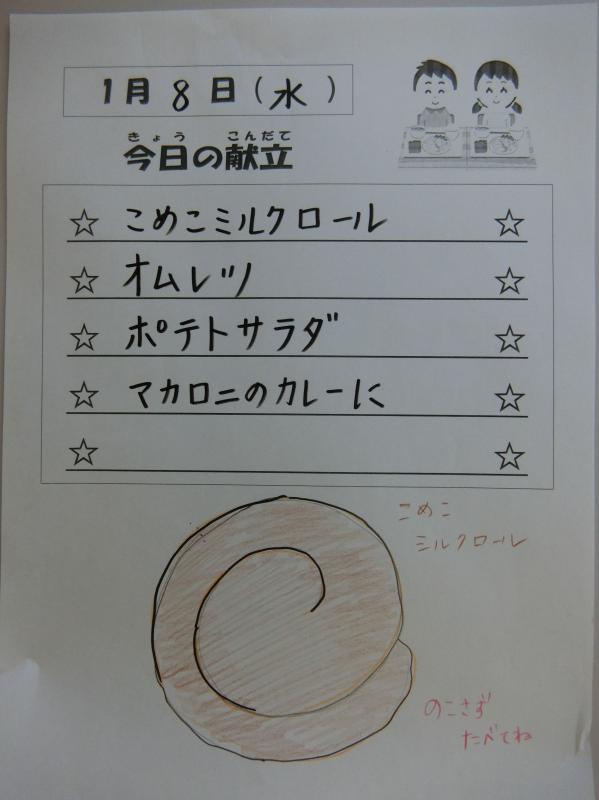 1月8日(水)
きょう こんだて
今日の献立
☆ こめこミルクロール ☆
☆ オムレツ ☆
☆ ポテトサラダ ☆
☆ マカロニのカレーに ☆
☆ ☆
こめこ
ミルクロール
のこさず
たべてね